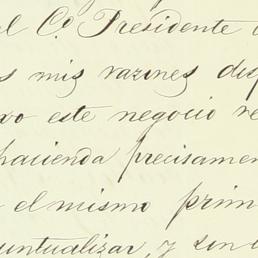 el C. Presidente
mis razones
este negocio
hacienda precisamen
el mismo prim
untualizar, y son